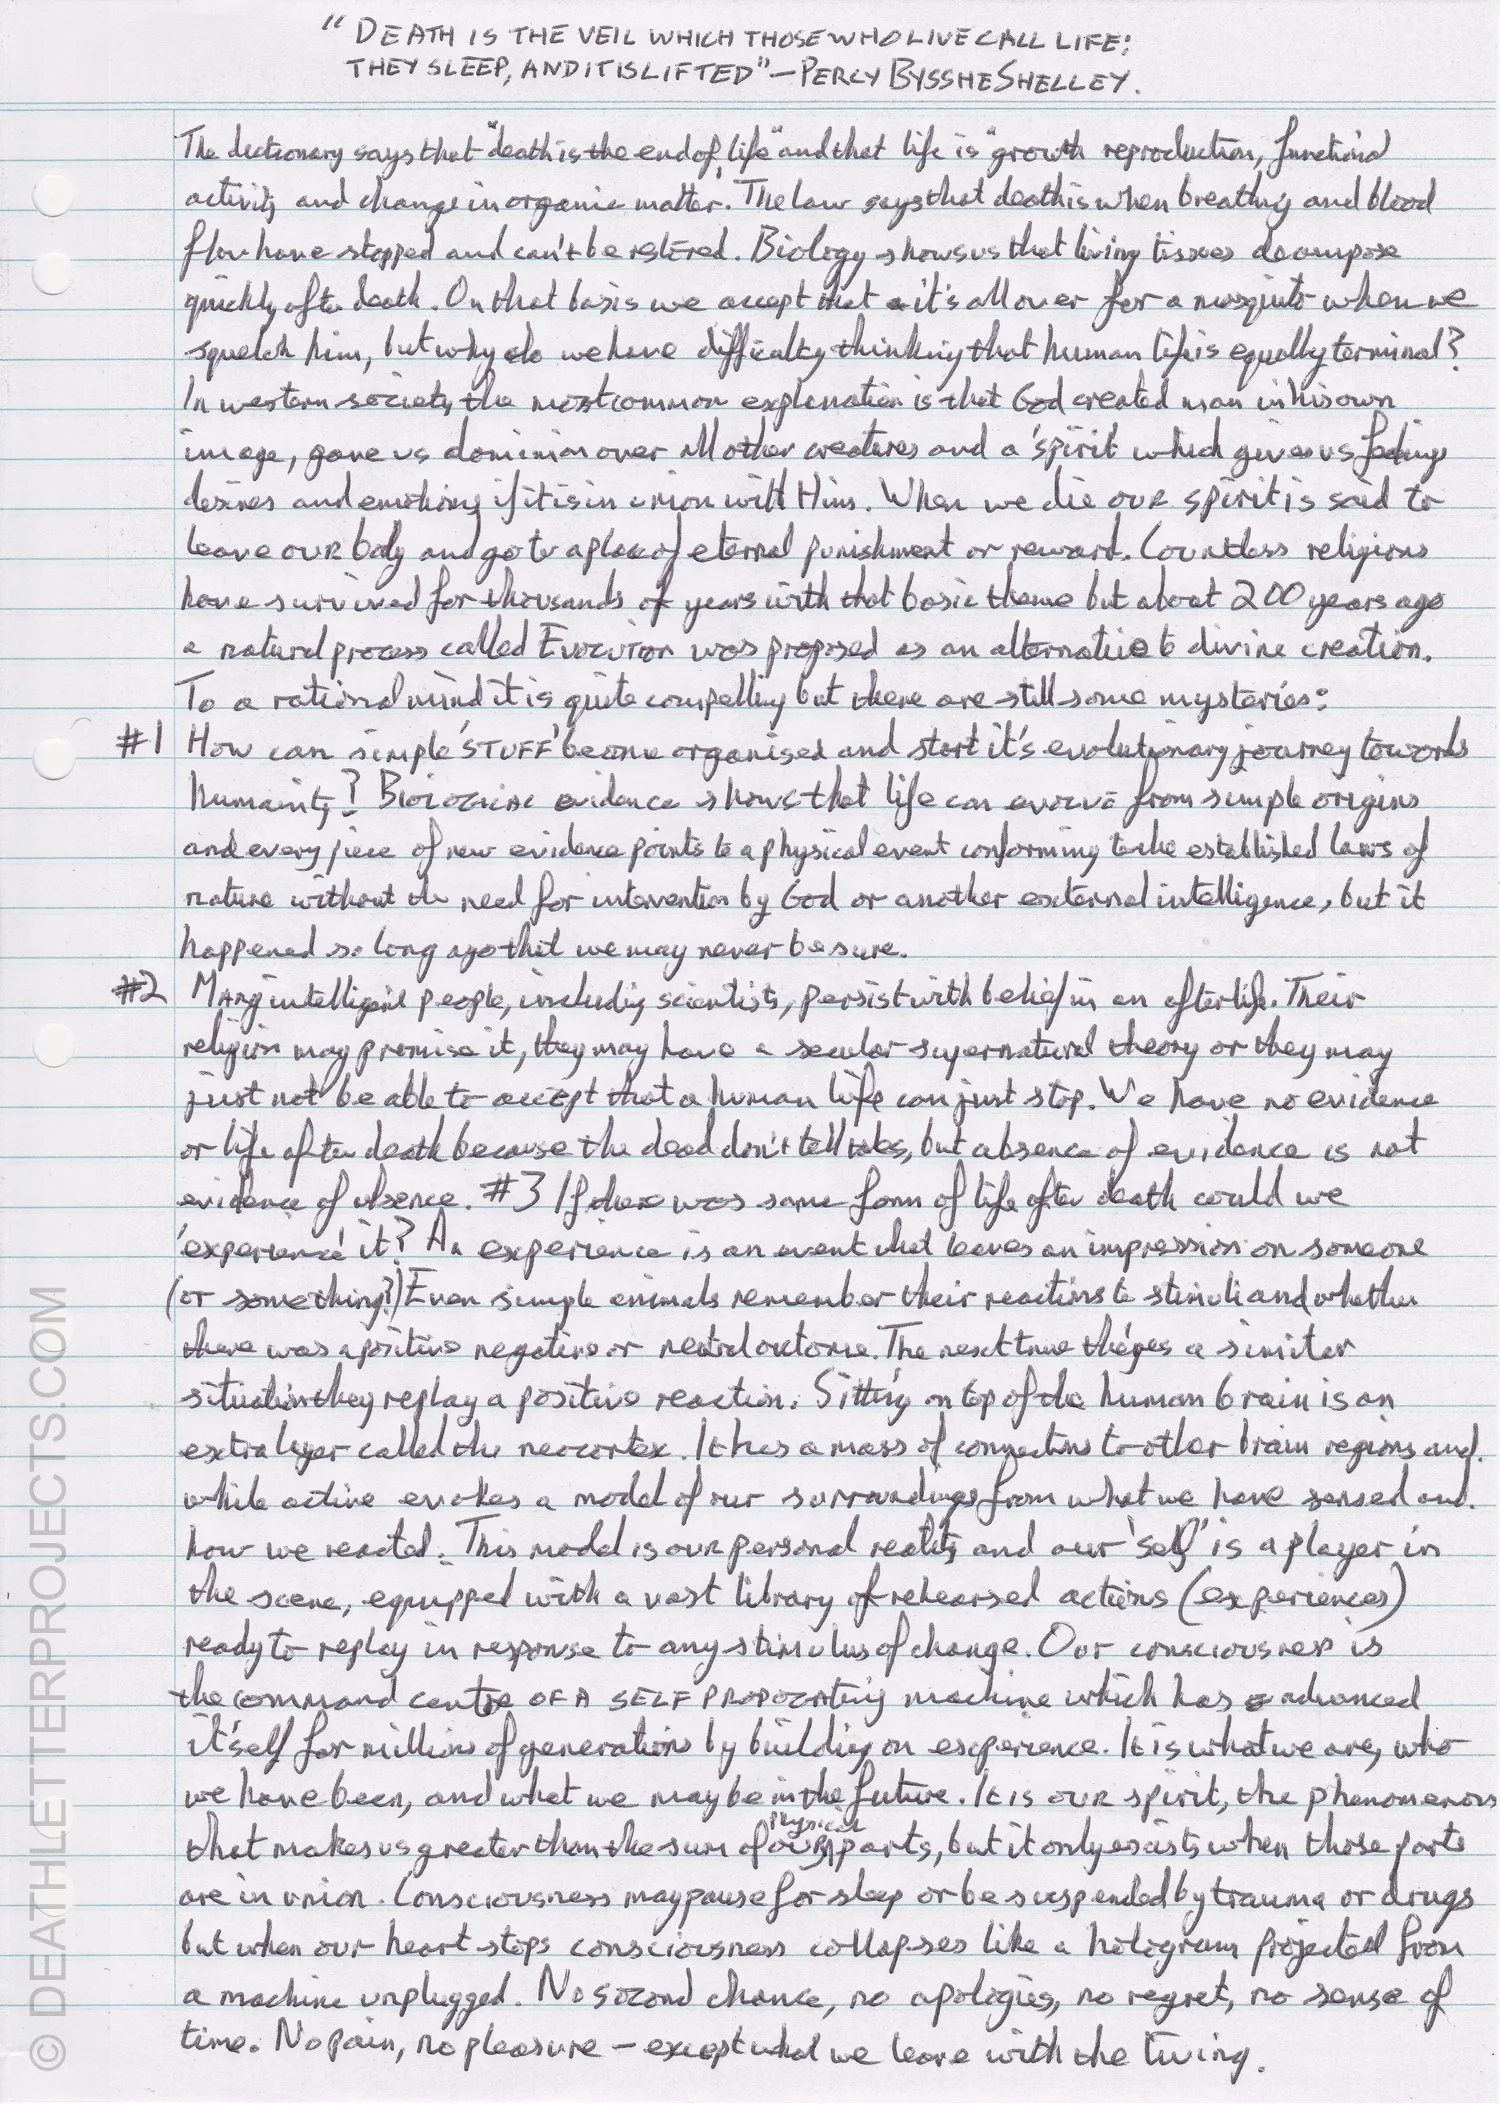 "DEATH IS THE VEIL WHICH THOSE WHO LIVE CALL LIFE:
THEY SLEEP, AND IT IS LIFTED" — PERCY BYSSHE SHELLEY.
The dictionary says that "death is the end of life" and that life is "growth reproduction, functional
activity and change in organic matter". The law says that death is when breathing and blood
flow have stopped and can't be restored. Biology shows us that living tissues decompose
quickly after death. On that basis we accept that it's all over for a mosquito when we
squelch him, but why do we have difficulty thinking that human life is equally terminal?
In western society the most common explanation is that God created man in his own
image, gave us dominion over all other creatures and a 'spirit which gives us feelings
desires and emotions if it is in union with Him. When we die OUR spirit is said to
leave OUR body and go to a place of eternal punishment or reward. Countless religions
have survived for thousands of years with that basic theme but about 200 years ago
a natural process called EVOLUTION was proposed as an alternative to divine creation.
To a rational mind it is quite compelling but there are still some mysteries:
#1 How can simple 'STUFF' become organised and start it's evolutionary journey towards
humanity? BIOLOGICAL evidence shows that life can evolve from simple origins
and every piece of new evidence points to a physical event conforming to the established laws of
nature without the need for intervention by God or another external intelligence, but it
happened so long ago that we may never be sure.
#2 MANY intelligent people, including scientists, persist with belief in an afterlife. Their
religion may promise it, they may have a secular supernatural theory or they may
just not be able to accept that a human life can just stop. We have no evidence
or life after death because the dead don't tell tales, but absence of evidence is not
evidence of absence. #3 If there was some form of life after death could we
'experience' it? An experience is an event that leaves an impression on someone
(or something?) Even simple animals remember their reactions to stimuli and whether
there was a positive negative or neutral outcome. The next time there's a similar
situation they replay a positive reaction. Sitting on top of the human brain is an
extra layer called the neocortex. It has a mass of connections to other brain regions and
while active evokes a model of our surroundings from what we have sensed and
how we reacted. This model is OUR personal reality and our 'self' is a player in
the scene, equipped with a vast library of rehearsed actions (experiences)
ready to replay in response to any stimulus of change. Our consciousness is
the command centre OF A SELF PROPOGATING machine which has advanced
it'self for millions of generations by building on experience. It is what we are, who
we have been, and what we may be in the future. It is our spirit, the phenomenon
that makes us greater than the sum of OUR physical parts, but it only exists when those parts
are in union. Consciousness may pause for sleep or be suspended by trauma or drugs
but when our heart stops consciousness collapses like a hologram projected from
a machine unplugged. No second chance, no apologies, no regret, no sense of
time. No pain, no pleasure — except what we leave with the living.
© DEATHLETTERPROJECTS.COM